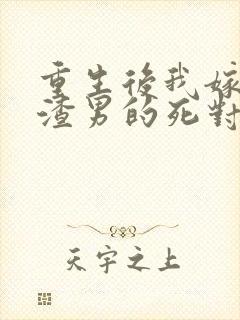 重生後我嫁
渣男的死對
天宇之上